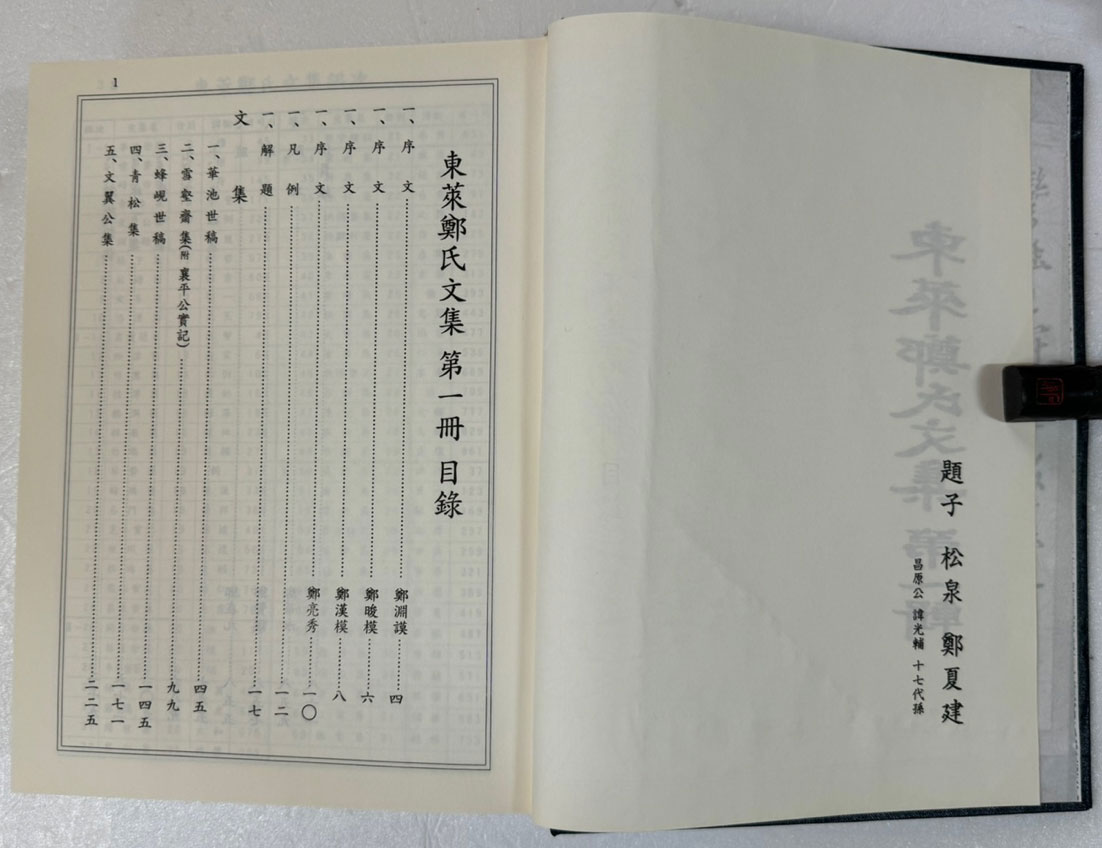 題子 松泉 鄭夏建
昌原公 諱光輔 十七代孫
1
東萊鄭氏文集 第一冊 目錄
一、序文……鄭淵謨……四
一、序文……鄭畯模……六
一、序文……鄭漢模……八
一、序文……鄭亮秀……一〇
一、凡例……一二
一、解題……一七
文集
一、華池世稿……四五
二、雪壑齋集(附 襄平公實記)……九九
三、蜂峴世稿……一四五
四、青松集……一七一
五、文翼公集……二二五